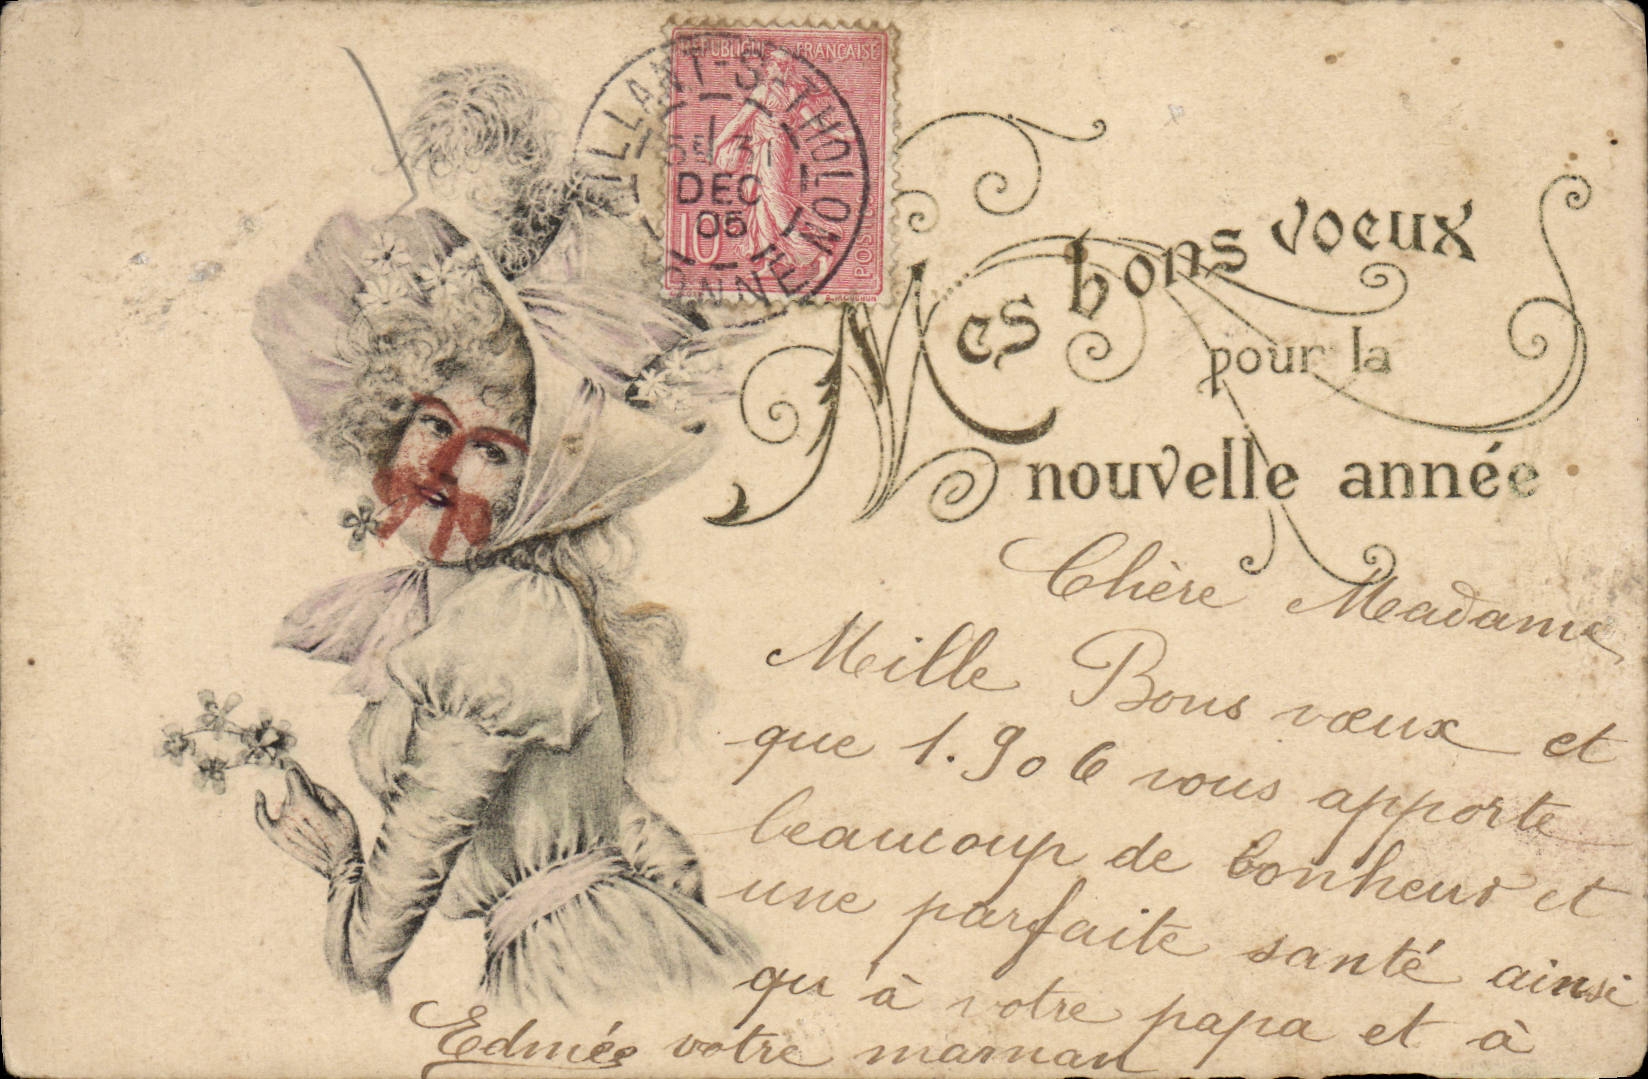 REPUBLIQUE FRANÇAISE
10
POSTES
ILLANT-S-THOLON
YONNE
31
DEC
05
Mes bons voeux
pour la
nouvelle année
Chère Madame
Mille Bons vœux et
que 1.906 vous apporte
beaucoup de bonheur et
une parfaite santé ainsi
qu'à votre papa et à
votre maman
Edmée